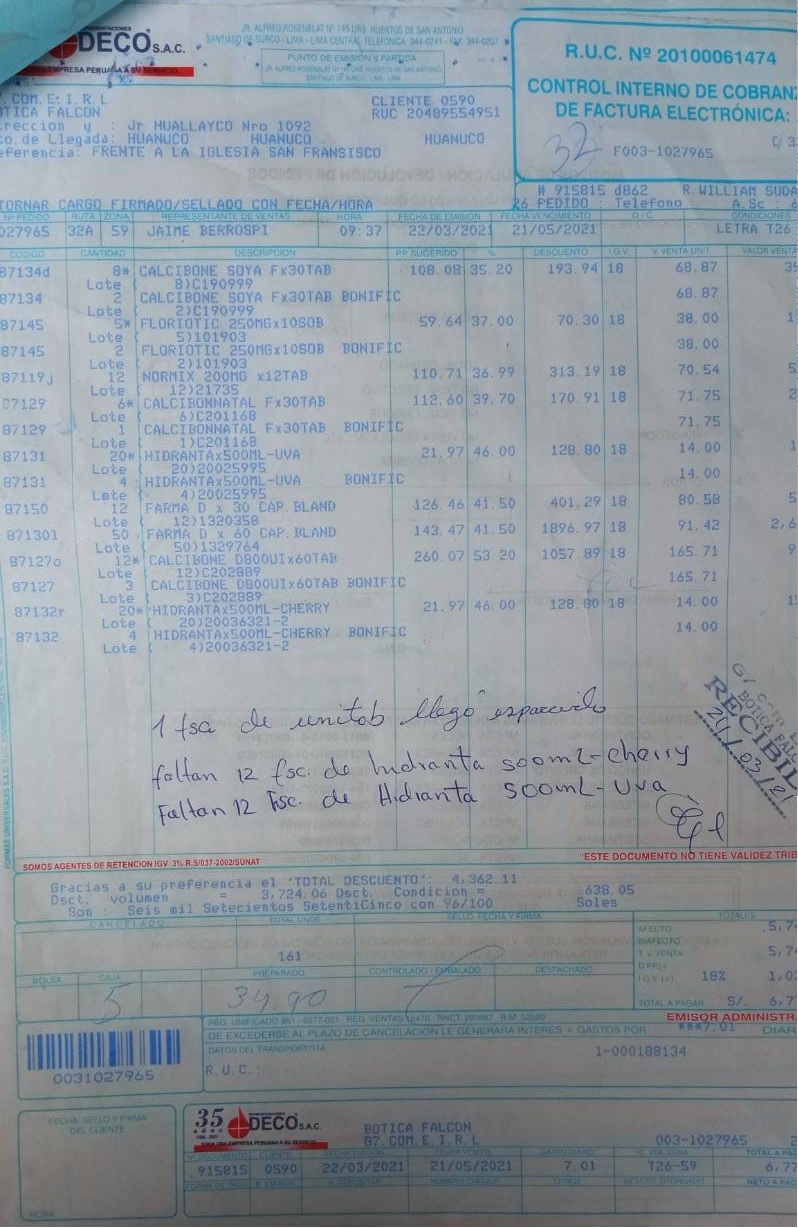 DECO S.A.C.
UNA EMPRESA PERUANA A SU SERVICIO
JR. ALFREDO ROSENBLAT Nº 145 URB. HUERTOS DE SAN ANTONIO
SANTIAGO DE SURCO - LIMA - LIMA CENTRAL TELEFÓNICA: 344-0241 - FAX: 344-0207
PUNTO DE EMISIÓN Y PARTIDA
JR. ALFREDO ROSENBLAT Nº 145 URB. HUERTOS DE SAN ANTONIO
SANTIAGO DE SURCO, LIMA, LIMA
R.U.C. Nº 20100061474
CONTROL INTERNO DE COBRANZ
DE FACTURA ELECTRÓNICA:
32 F003-1027965
.COM.E.I.R.L CLIENTE 0590
OTICA FALCON RUC 20489554951
reccion y : Jr HUALLAYCO Nro 1092
o. de Llegada: HUANUCO HUANUCO HUANUCO
eferencia: FRENTE A LA IGLESIA SAN FRANSISCO
# 915815 d862 R.WILLIAM SUDA
TORNAR CARGO FIRMADO/SELLADO CON FECHA/HORA 26 PEDIDO : Telefono A.Sc : 6
Nº PEDIDO RUTA ZONA REPRESENTANTE DE VENTAS HORA FECHA DE EMISION FECHA VENCIMIENTO O/C CONDICIONES
027965 32A 59 JAIME BERROSPI 09:37 22/03/2021 21/05/2021 LETRA T26
CODIGO CANTIDAD DESCRIPCION P.P. SUGERIDO % DESCUENTO I.G.V. V. VENTA UNIT. VALOR VENTA
87134d 8* CALCIBONE SOYA Fx30TAB 108.08 35.20 193.94 18 68.87 35
Lote ( 8)C190999
87134 2 CALCIBONE SOYA Fx30TAB BONIFIC 68.87
Lote ( 2)C190999
87145 5* FLORIOTIC 250MGx10SOB 59.64 37.00 70.30 18 38.00 1
Lote ( 5)101903
87145 2 FLORIOTIC 250MGx10SOB BONIFIC 38.00
Lote ( 2)101903
87119j 12 NORMIX 200MG x12TAB 110.71 36.99 313.19 18 70.54 5
Lote ( 12)21735
87129 6* CALCIBONNATAL Fx30TAB 112.60 39.70 170.91 18 71.75 2
Lote ( 6)C201168
87129 1 CALCIBONNATAL Fx30TAB BONIFIC 71.75
Lote ( 1)C201168
87131 20* HIDRANTAx500ML-UVA 21.97 46.00 128.80 18 14.00 1
Lote ( 20)20025995
87131 4 HIDRANTAx500ML-UVA BONIFIC 14.00
Lote ( 4)20025995
87150 12 FARMA D x 30 CAP.BLAND 126.46 41.50 401.29 18 80.58 5
Lote ( 12)1320358
871301 50 FARMA D x 60 CAP.BLAND 143.47 41.50 1896.97 18 91.42 2,6
Lote ( 50)1329764
87127o 12* CALCIBONE D800UIx60TAB 260.07 53.20 1057.89 18 165.71 9
Lote ( 12)C202889
87127 3 CALCIBONE D800UIx60TAB BONIFIC 165.71
Lote ( 3)C202889
87132r 20* HIDRANTAx500ML-CHERRY 21.97 46.00 128.80 18 14.00 1
Lote ( 20)20036321-2
87132 4 HIDRANTAx500ML-CHERRY BONIFIC 14.00
Lote ( 4)20036321-2
1 fsa de unitob llegó esparcido
faltan 12 fsc. de hidranta 500mL-cherry
Faltan 12 Fsc. de Hidranta 500mL-Uva
G7 com E
BOTICA FALCO
RECIBID
24/03/21
SOMOS AGENTES DE RETENCION IGV 3% R.S/037-2002/SUNAT
"ESTE DOCUMENTO NO TIENE VALIDEZ TRIB
Gracias a su preferencia el 'TOTAL DESCUENTO': 4,362.11
Dsct. volumen = 3,724.06 Dsct. Condicion = 638.05
Son : Seis mil Setecientos SetentiCinco con 96/100 Soles
CANCELADO TOTAL UNDS SELLO, FECHA Y FIRMA TOTALES
161
AFECTO 5,74
INAFECTO
T.V. VENTA 5,74
D.PP(-)
I.G.V. (+) 18% 1,03
TOTAL A PAGAR S/. 6,77
BOLSA CAJA PREPARADO CONTROLADO / EMBALADO DESPACHADO
5 34,90
EMISOR ADMINISTRA
DE EXCEDERSE AL PLAZO DE CANCELACION LE GENERARA INTERES + GASTOS POR ***7.01 DIAR
DATOS DEL TRANSPORTISTA
1-000188134
R.U.C.:
0031027965
FECHA, SELLO Y FIRMA
DEL CLIENTE
HORA
35 años DECO S.A.C.
UNA EMPRESA PERUANA A SU SERVICIO
BOTICA FALCON
G7.COM.E.I.R.L
003-1027965
Nº DOCUMENTO CLIENTE FECHA EMISION FECHA VCMTO GASTO DIARIO C. VTA. ZONA TOTAL A PAG
915815 0590 22/03/2021 21/05/2021 7.01 T26-59 6,77
FORMA DE PAGO B. EMISOR B. DEPOSITAR NUMERO CHEQUE OTROS DESCTO. OTORGADO NETO A PAG